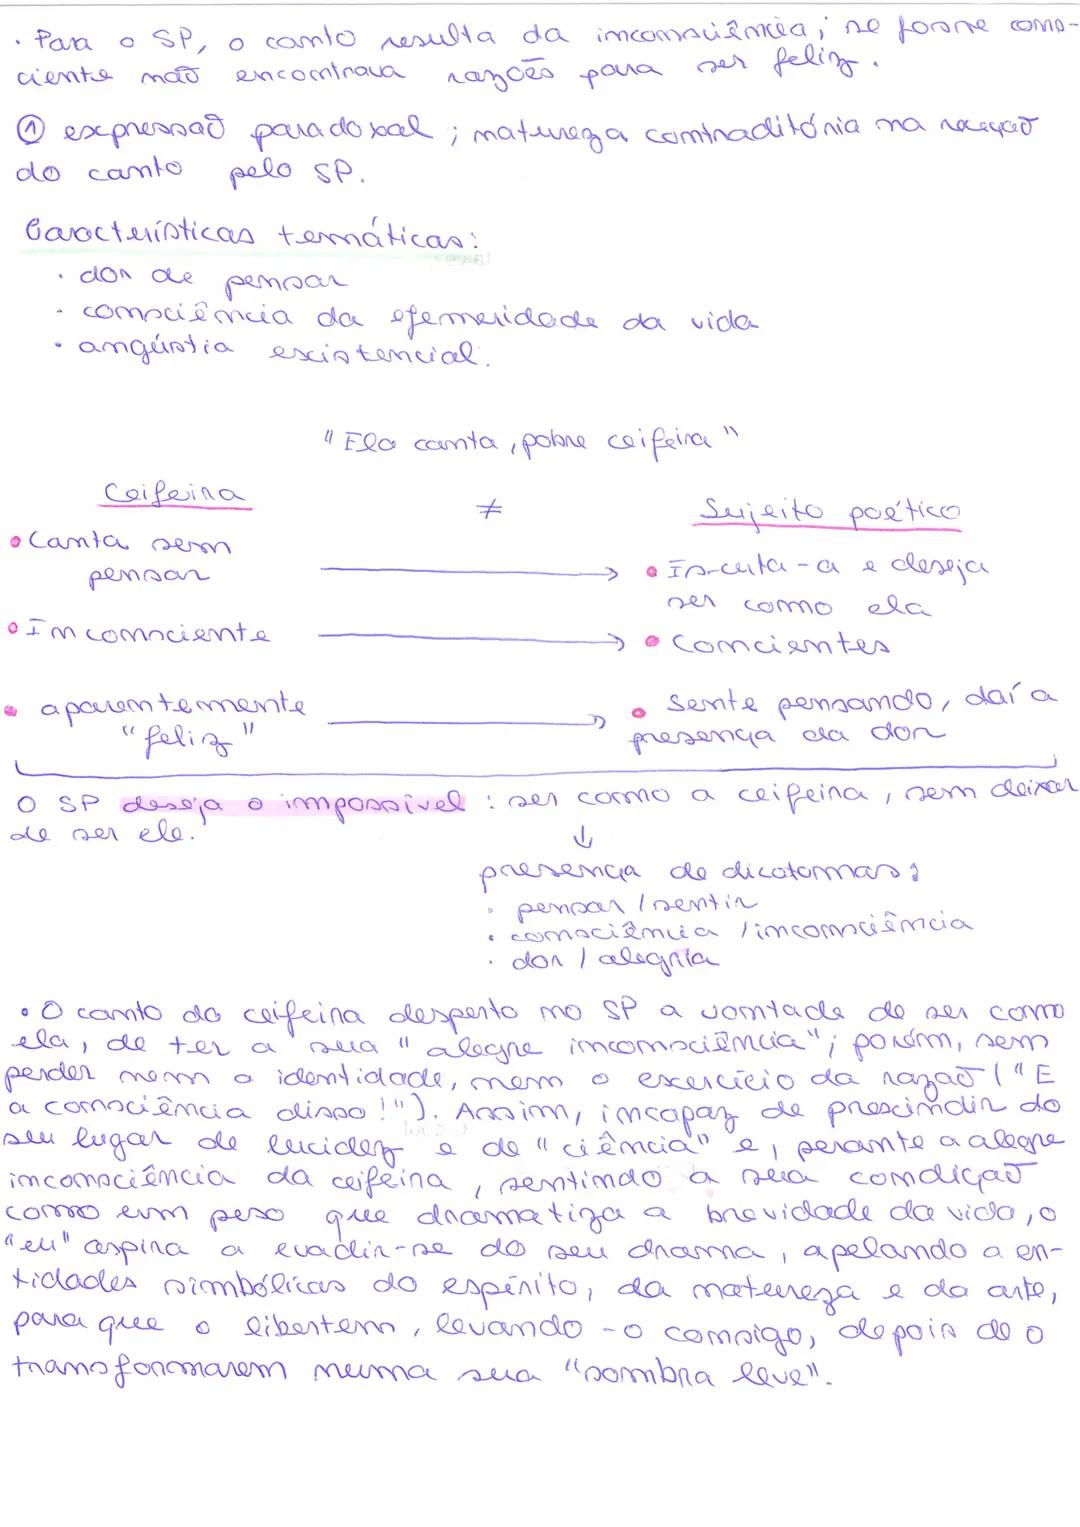 · Para o SP, o canto resulta da inconsciência; se fosse cons-
ciente não encontrava razões para ser feliz.
① expressão paradoxal; natureza contraditória na receção
do canto pelo SP.
Características temáticas:
· dor de pensar
· consciência da efemeridade da vida
· angústia existencial.
"Ela canta, pobre ceifeira"
Ceifeira ≠ Sujeito poético
• Canta sem pensar → • Escuta-a e deseja ser como ela
• Inconsciente → • Concientes
• aparentemente "feliz" → • Sente pensando, daí a presença da dor
O SP deseja o impossível: ser como a ceifeira, sem deixar
de ser ele.
↓
presença de dicotomas:
· pensar / sentir
· consciência / inconsciência
· dor / alegria
• O canto da ceifeira desperta no SP a vontade de ser como
ela, de ter a sua "alegre inconsciência"; porém, sem
perder nem a identidade, nem o exercício da razão ("E
a consciência disso!"). Assim, incapaz de prescindir do
seu lugar de lucidez e de "ciência" e, perante a alegre
inconsciência da ceifeira, sentindo a sua condição
como um peso que dramatiza a brevidade da vida, o
"eu" aspira a evadir-se do seu drama, apelando a en-
tidades simbólicas do espírito, da natureza e da arte,
para que o libertem, levando-o consigo, depois de o
transformarem numa sua "sombra leve".